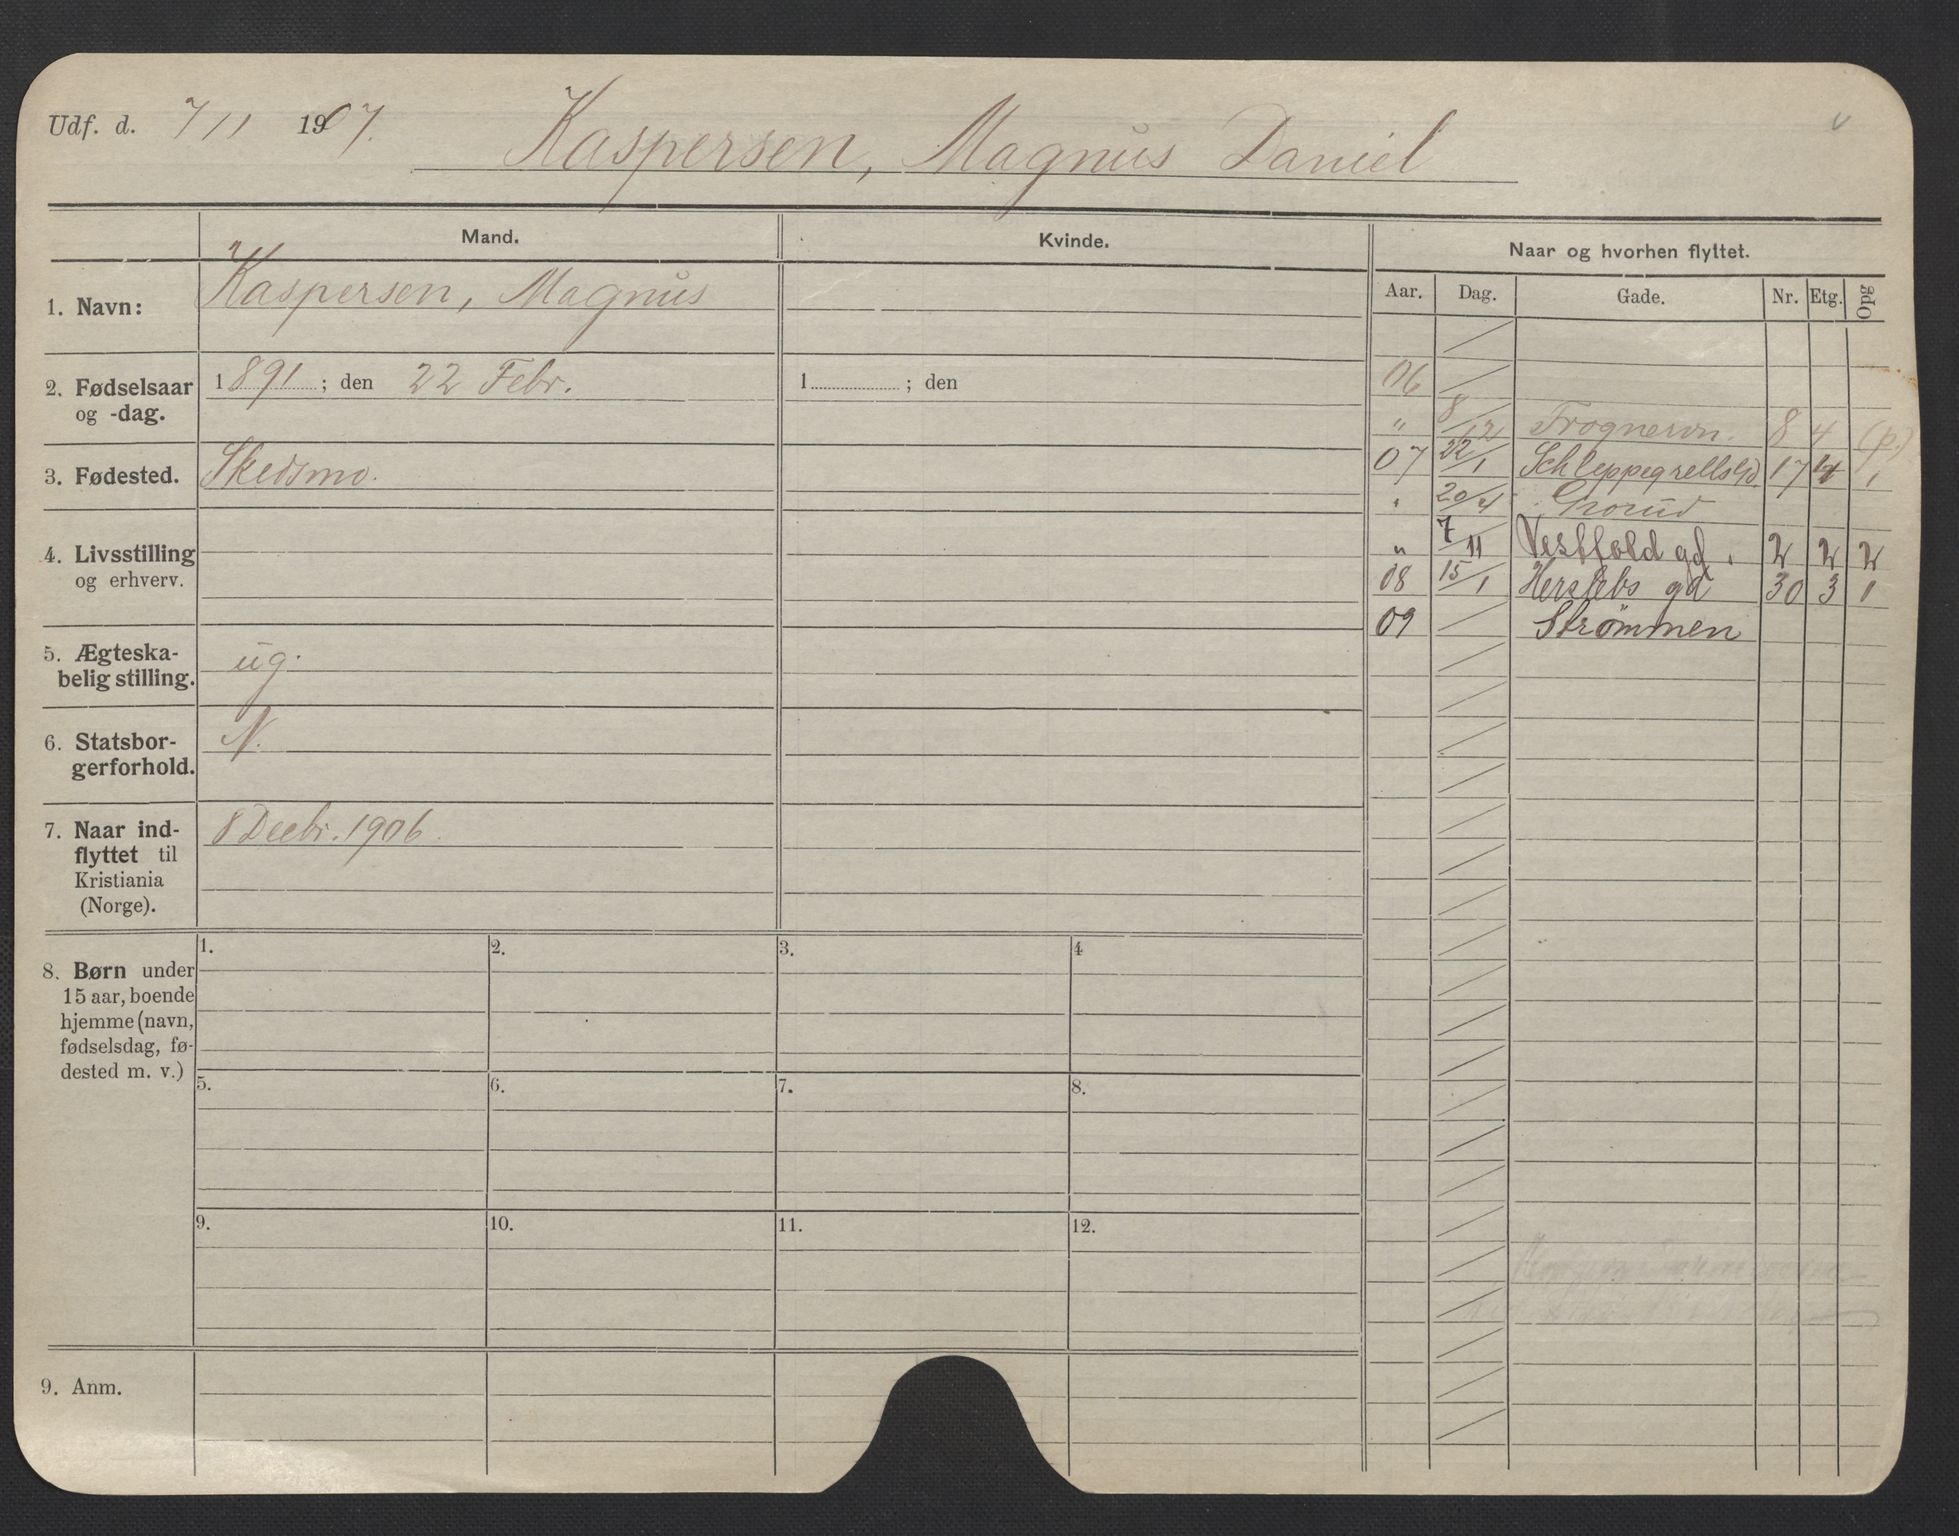 Udf. d. 7/11 1907. Kaspersen, Magnus Daniel
Mand. Kvinde. Naar og hvorhen flyttet.
Aar. Dag. Gade. Nr. Etg. Opg
1. Navn: Kaspersen, Magnus
2. Fødselsaar og -dag. 1891 ; den 22 Febr. 1 ; den
3. Fødested. Skedsmo.
4. Livsstilling og erhverv.
5. Ægteskabelig stilling. ug.
6. Statsborgerforhold. N.
7. Naar indflyttet til Kristiania (Norge). 8 Decbr. 1906.
06
" 8/12 Frognervn. 8 4 (p.)
07 22/1 Schleppegrellsgd. 17 4 1
" 20/4 Grorud
" 7/11 Vestfold gd. 2 2 2
08 15/1 Herslebs gd 30 3 1
09 Strømmen
8. Børn under 15 aar, boende hjemme (navn, fødselsdag, fødested m. v.)
1. 2. 3. 4
5. 6. 7. 8.
9. 10. 11. 12.
9. Anm.